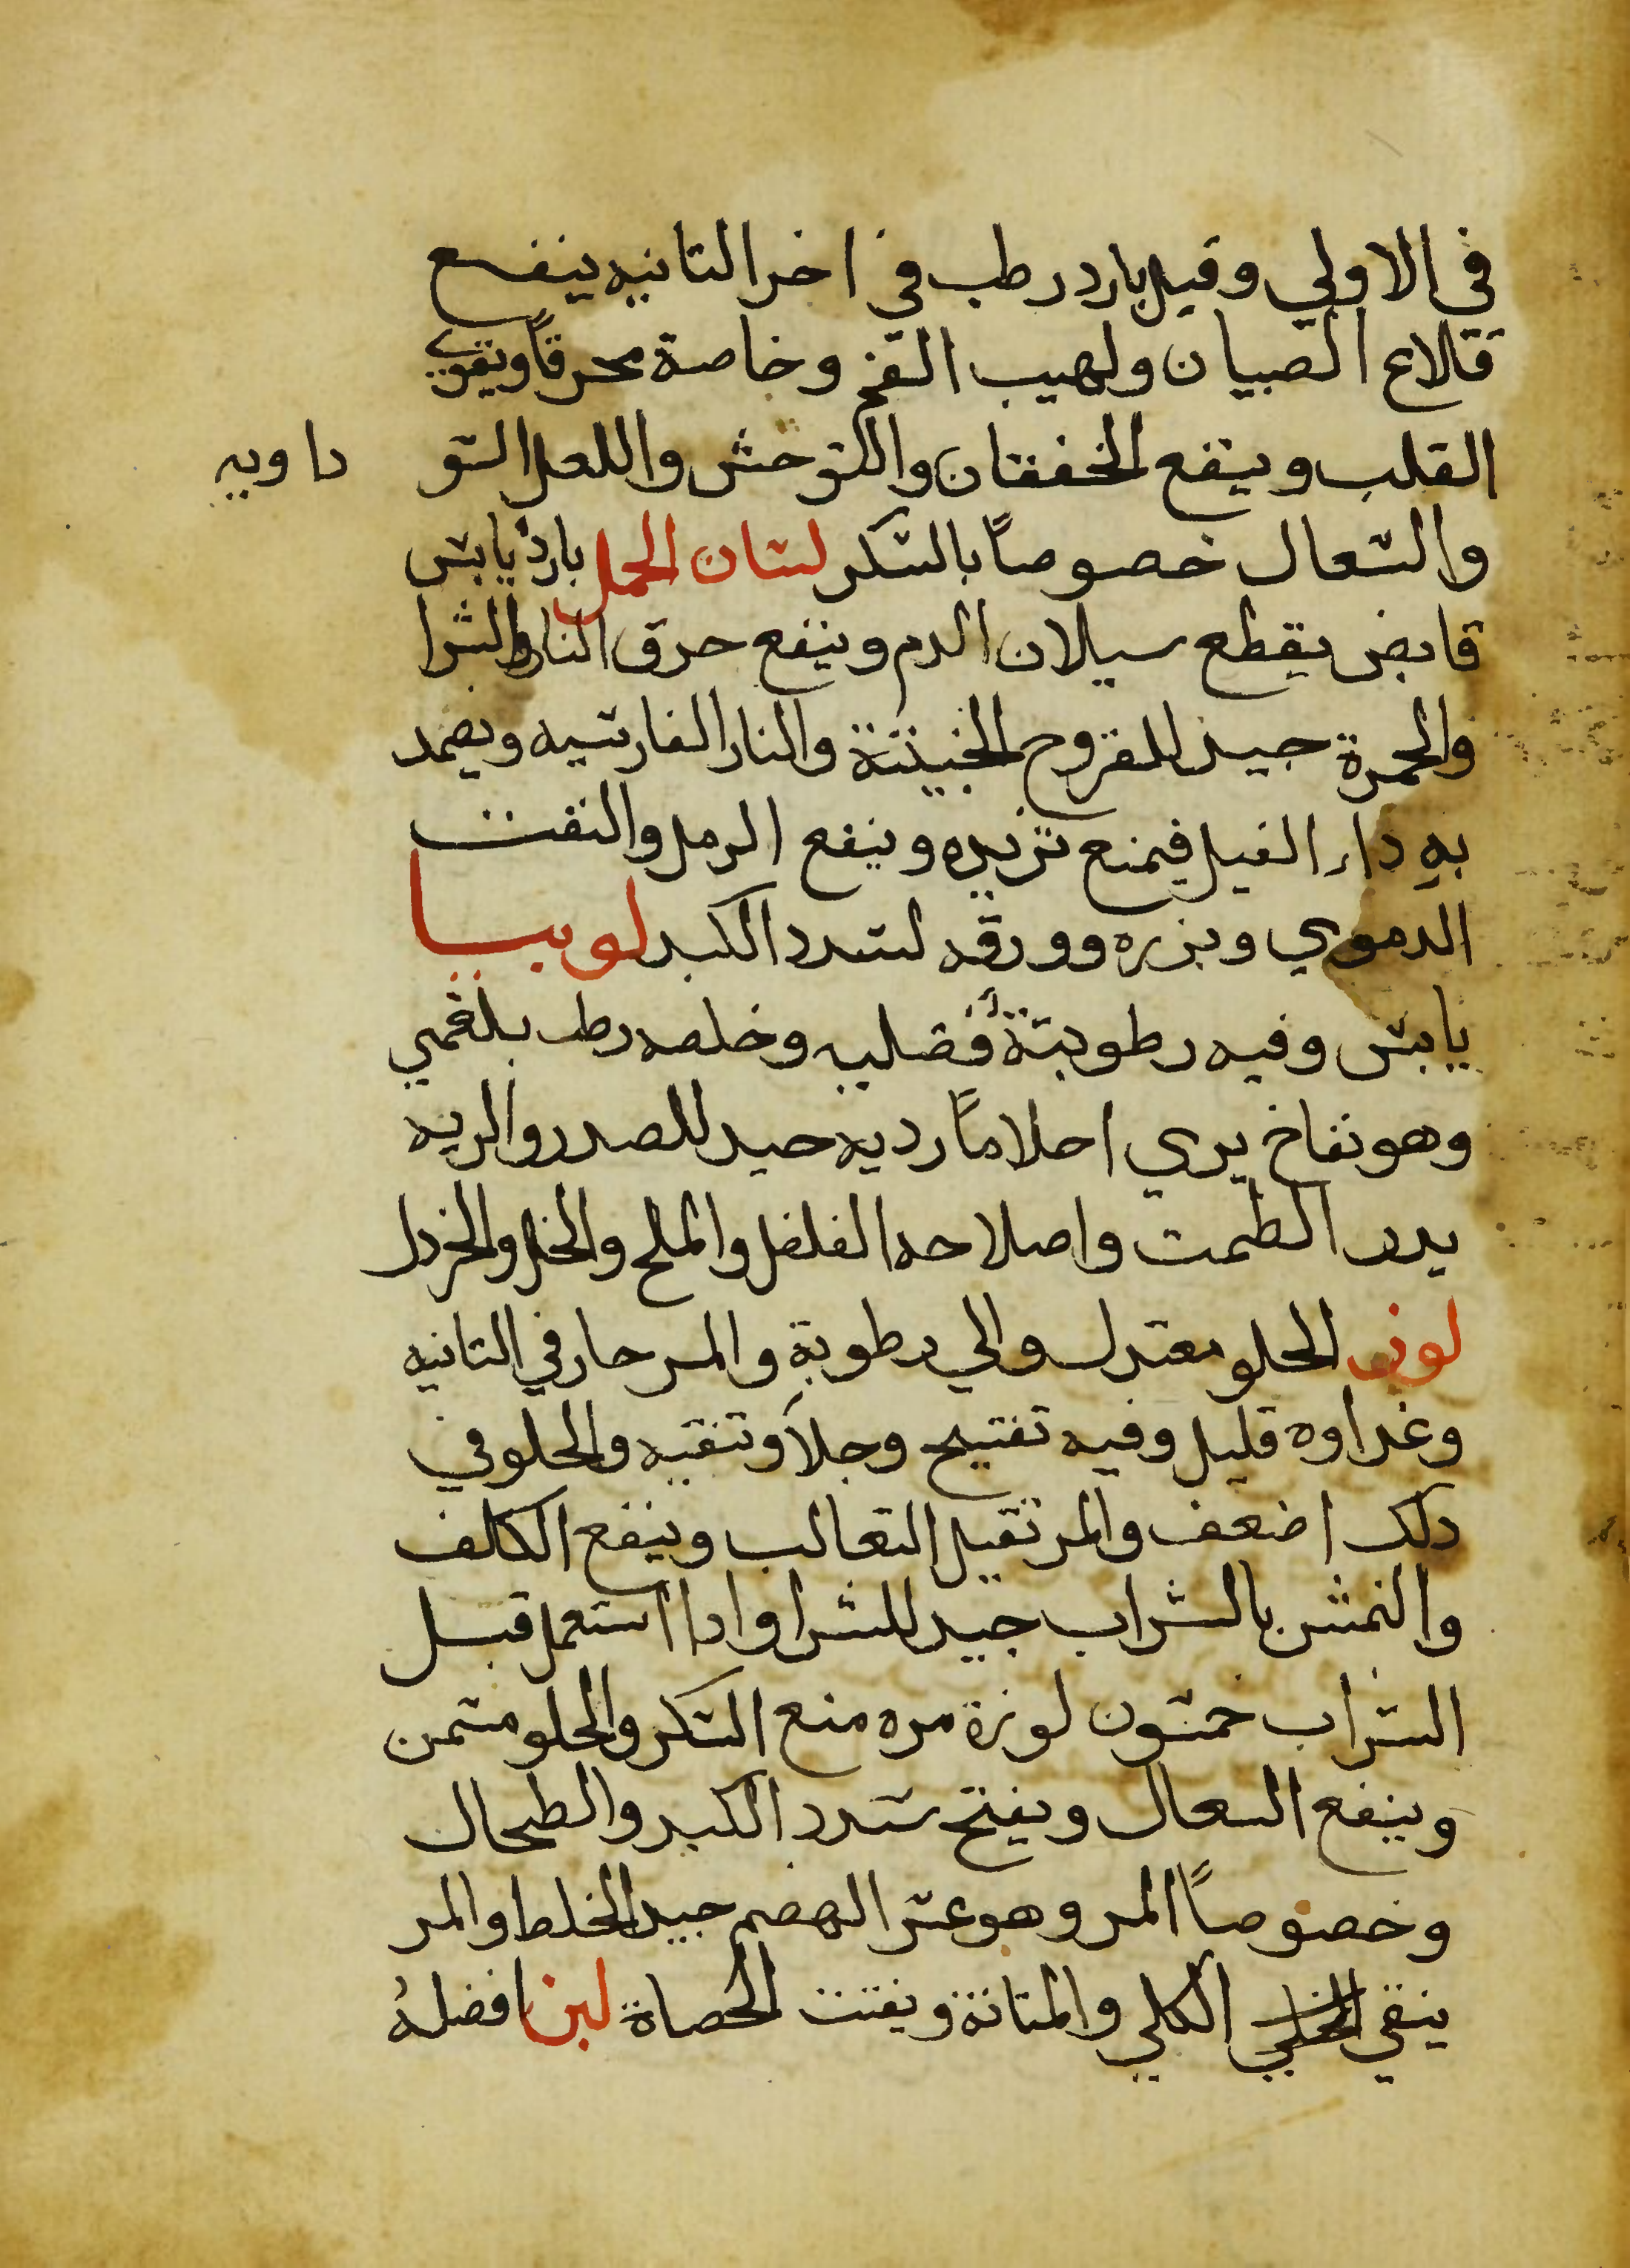 في الاولي وقيل بارد رطب في اخر التانيه ينفع
قلاع الصبيان ولهيب الفم وخاصة محرقاً ويقوي
القلب وينفع الخفقان والتوحش والعلل السو داويه
والسعال خصوصاً بالسكر لسان الحمل بارد يابس
قابض يقطع سيلان الدم وينفع حرق النار والشرا
والحمرة جيد للقروح الخبيثة والنار الفارسيه ويضمد
به داء الفيل فيمنع تزيده وينفع الرمل والنفث
الدموي وبزره وورقه لسدد الكبد لوبيا
يابس وفيه رطوبة فضليه وخلطه رطب بلغمي
وهو نفاخ يري احلاماً رديه جيد للصدر والريه
يدر الطمث واصلاحه الفلفل والملح والخل والخردل
لوز الحلو معتدل والي رطوبة والمر حار في التانيه
وغداوه قليل وفيه تفتيح وجلاً وتنقيه والحلو في
دلك اضعف والمر تقيل التعالب وينفع الكلف
والنمش بالشراب جيد للشرا وادا استعمل قبل
الشراب خمسون لوزة مره منع السكر والحلو مسمن
وينفع السعال ويفتح سدد الكبد والطحال
وخصوصاً المر وهو عسر الهضم جيد الخلط والمر
ينقي الكلي والمتانة ويفتت الحصاة لبن افضله